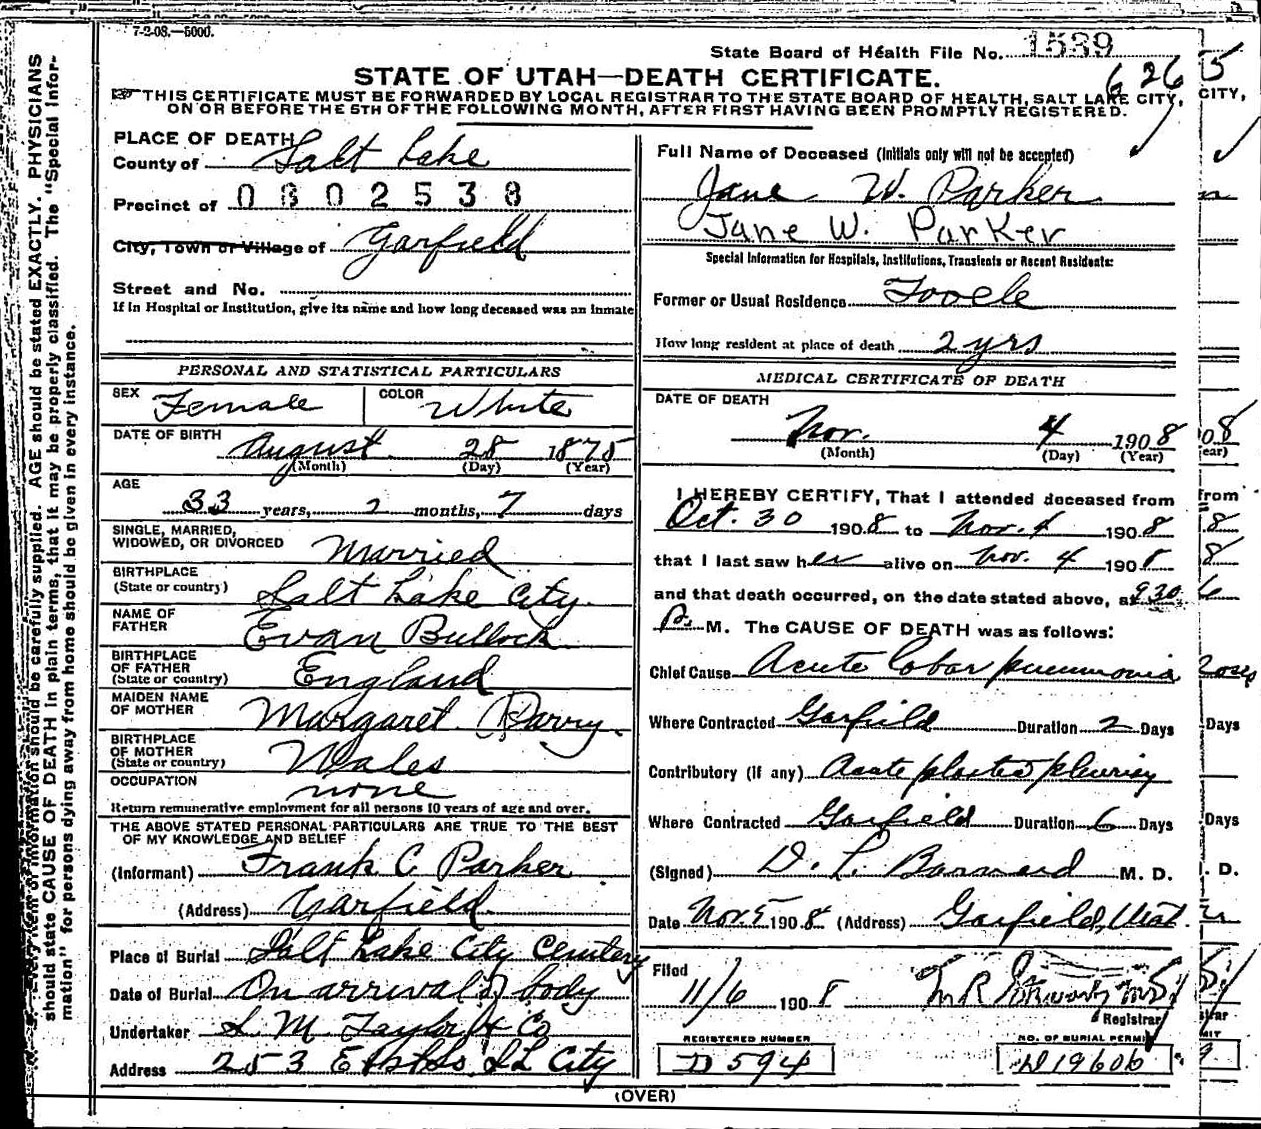 7-2-08.—5000.
State Board of Health File No. 1539
STATE OF UTAH—DEATH CERTIFICATE.
6265
THIS CERTIFICATE MUST BE FORWARDED BY LOCAL REGISTRAR TO THE STATE BOARD OF HEALTH, SALT LAKE CITY,
ON OR BEFORE THE 5TH OF THE FOLLOWING MONTH, AFTER FIRST HAVING BEEN PROMPTLY REGISTERED.
PLACE OF DEATH
County of Salt Lake
Precinct of 0802538
City, Town or Village of Garfield
Street and No.
If in Hospital or Institution, give its name and how long deceased was an inmate
PERSONAL AND STATISTICAL PARTICULARS
SEX Female COLOR White
DATE OF BIRTH August 28 1875
(Month) (Day) (Year)
AGE
33 years, 2 months, 7 days
SINGLE, MARRIED,
WIDOWED, OR DIVORCED Married
BIRTHPLACE
(State or country) Salt Lake City
NAME OF
FATHER Evan Bullock
BIRTHPLACE
OF FATHER
(State or country) England
MAIDEN NAME
OF MOTHER Margaret Parry
BIRTHPLACE
OF MOTHER
(State or country) Wales
OCCUPATION none
Return remunerative employment for all persons 10 years of age and over.
THE ABOVE STATED PERSONAL PARTICULARS ARE TRUE TO THE BEST
OF MY KNOWLEDGE AND BELIEF
(Informant) Frank C Parker
(Address) Garfield
Place of Burial Salt Lake City Cemetery
Date of Burial On arrival of body
Undertaker S. M. Taylor & Co
Address 253 E SL City
Full Name of Deceased (Initials only will not be accepted)
Jane W. Parker
Jane W. Parker
Special Information for Hospitals, Institutions, Transients or Recent Residents:
Former or Usual Residence Tooele
How long resident at place of death 2 yrs
MEDICAL CERTIFICATE OF DEATH
DATE OF DEATH
Nov. 4 1908
(Month) (Day) (Year)
I HEREBY CERTIFY, That I attended deceased from
Oct. 30 1908 to Nov. 4 1908
that I last saw her alive on Nov. 4 1908
and that death occurred, on the date stated above, at 930
P. M. The CAUSE OF DEATH was as follows:
Chief Cause Acute lobar pneumonia
Where Contracted Garfield Duration 2 Days
Contributory (if any) Acute plastic pleurisy
Where Contracted Garfield Duration 6 Days
(Signed) D. L. Barnard M. D.
Date Nov 5 1908 (Address) Garfield, Utah
Filed
11/6 1908 M R Stewart MD
Registrar
REGISTERED NUMBER
D 594
NO. OF BURIAL PERMIT
D 19606
(OVER)
Every item of information should be carefully supplied. AGE should be stated EXACTLY. PHYSICIANS
should state CAUSE OF DEATH in plain terms, that it may be properly classified. The "Special Infor-
mation" for persons dying away from home should be given in every instance.
CITY,
08
ear)
from
8
8
Days
Days
. D.